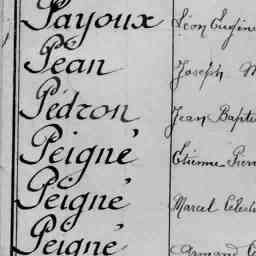 Payoux Léon Eugène
Péan Joseph M
Pédron Jean Baptis
Peigné Etienne Pierr
Peigné Marcel Célest
Peigné Armand